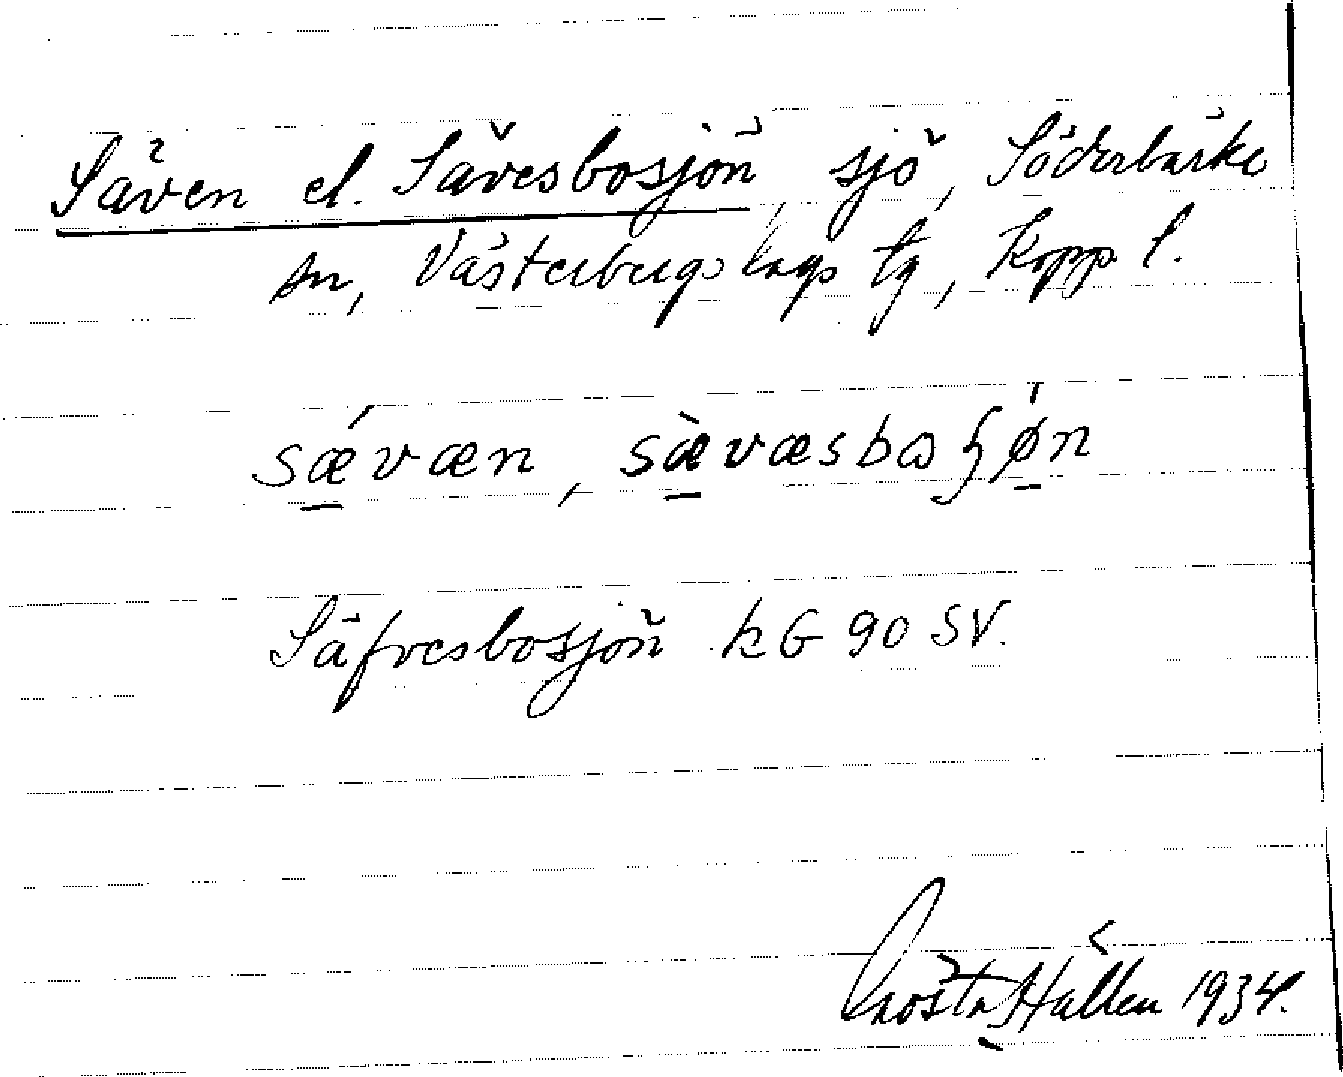 Säven el. Sävesbosjön, sjö, Söderbärke
sn, Västerbergslags tg, Kopp l.
sǽvæn, sæ̀væsbɷʃø̍n
Säfvesbosjön kG 90 SV.
Gösta Hállen 1934.